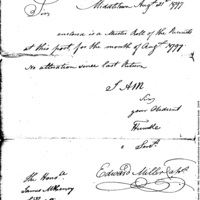 Middletown Augt 31st 1797
Sir
enclosed is a Muster Roll of the Recruits
at this post for the month of Augt 1797
No alteration since last Return
I AM
Sir
your Obedient
Humble
Servt
Edward Miller Capt
The Honble
James McHenry